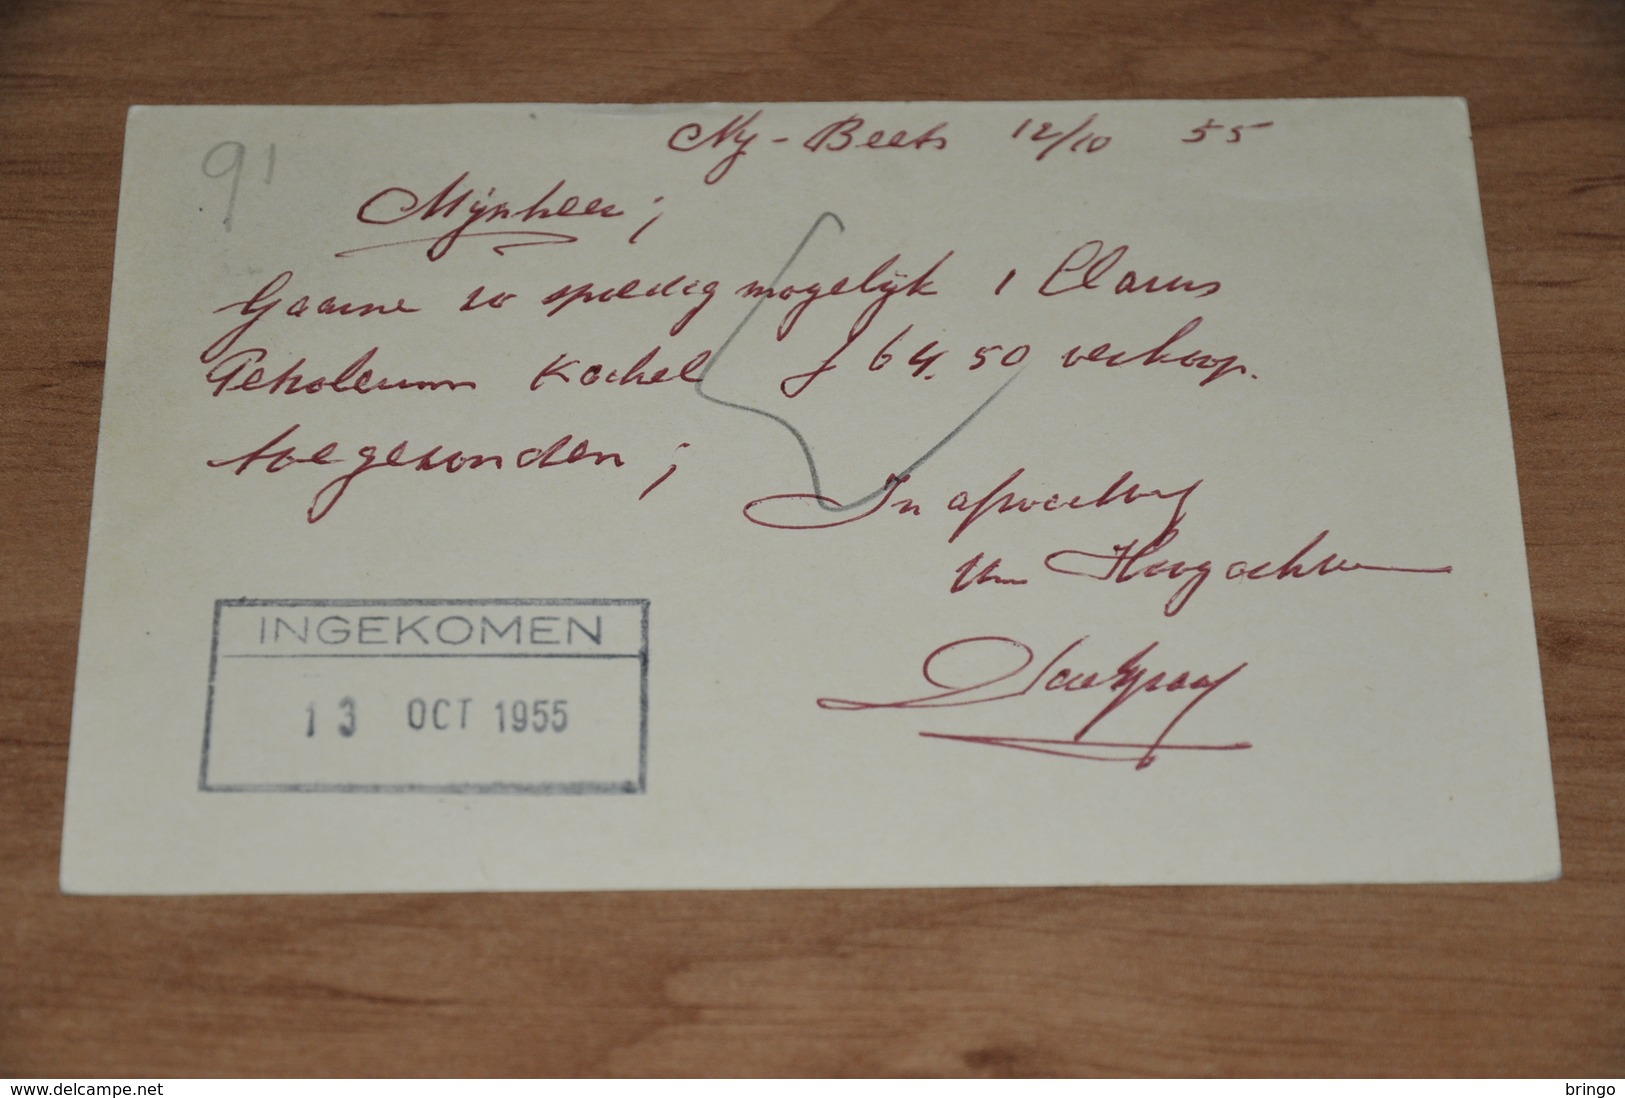 91
Ny-Beets 12/10 55
Mijnheer;
Gaarne zo spoedig mogelijk 1 Clarus
Petroleum Kachel f 64.50 verkoop.
toegezonden;
In afwachting
Hoogachtend
INGEKOMEN
13 OCT 1955
www.delcampe.net
bringo